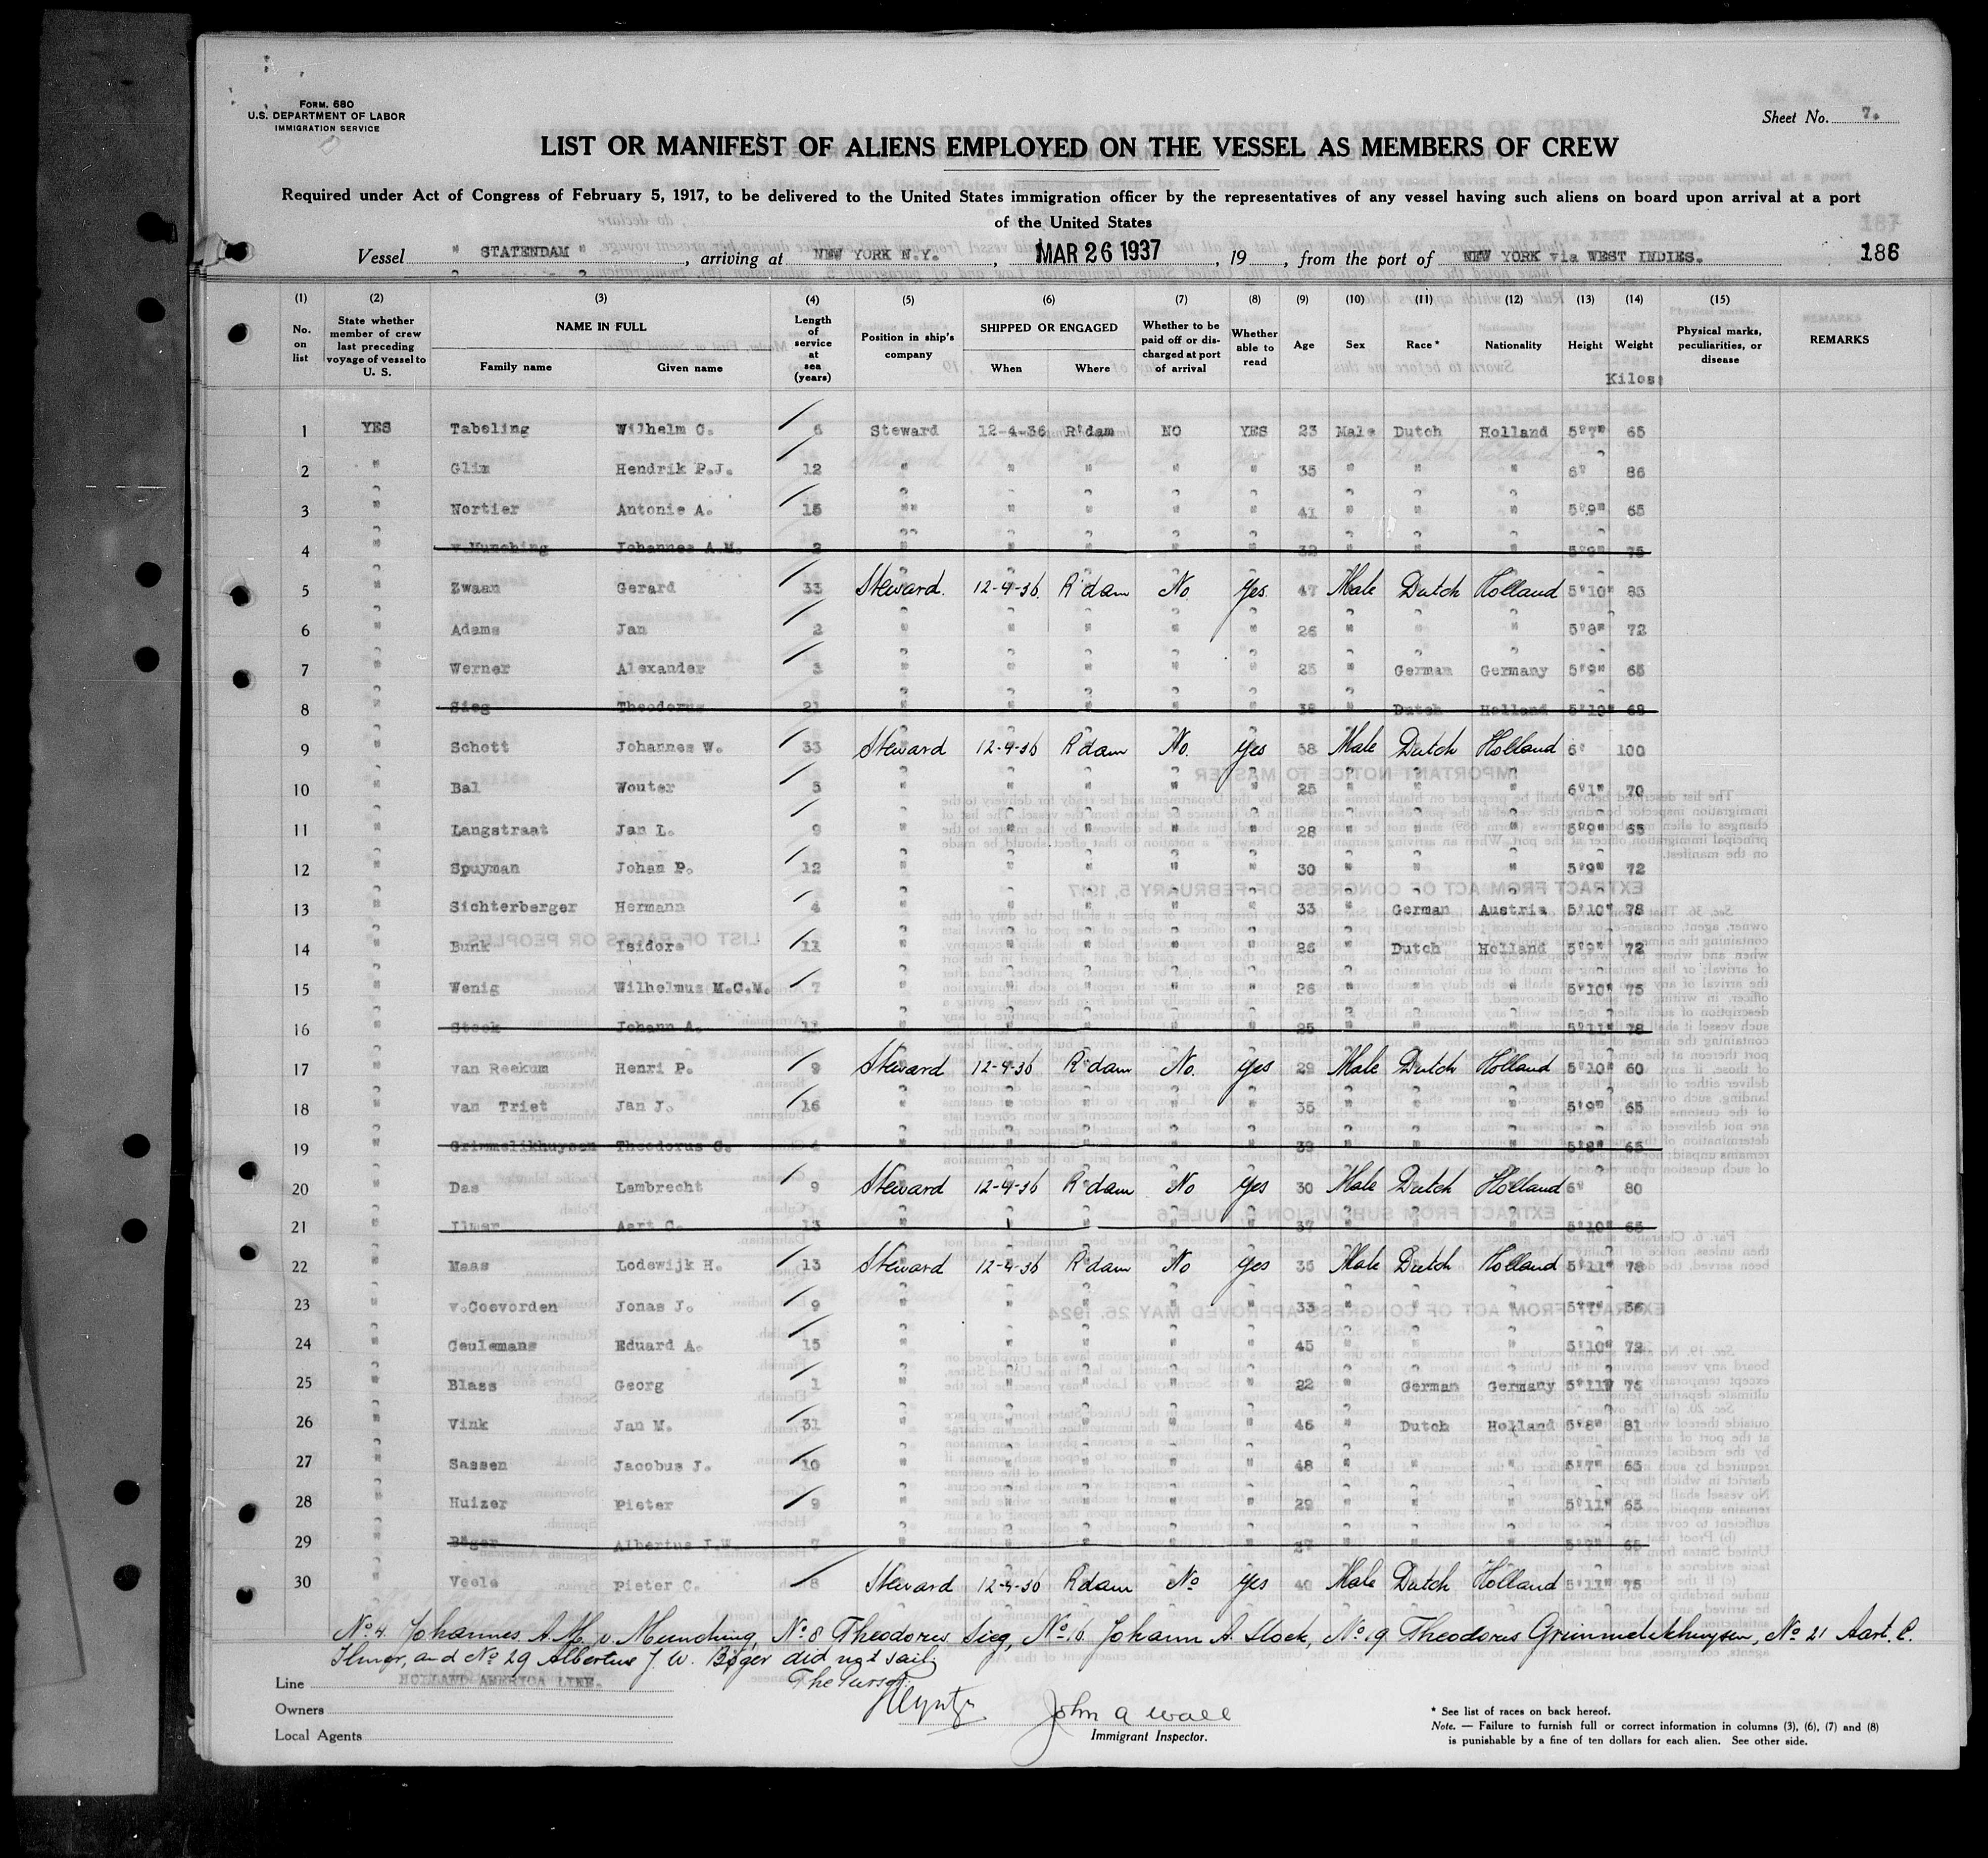 FORM. 680
U.S. DEPARTMENT OF LABOR
IMMIGRATION SERVICE
Sheet No. 7.
LIST OR MANIFEST OF ALIENS EMPLOYED ON THE VESSEL AS MEMBERS OF CREW
Required under Act of Congress of February 5, 1917, to be delivered to the United States immigration officer by the representatives of any vessel having such aliens on board upon arrival at a port
of the United States
187
Vessel " STATENDAM ", arriving at NEW YORK N.Y., MAR 26 1937, 19, from the port of NEW YORK via WEST INDIES. 186
(1) No. on list (2) State whether member of crew last preceding voyage of vessel to U. S. (3) NAME IN FULL Family name Given name (4) Length of service at sea (years) (5) Position in ship's company (6) SHIPPED OR ENGAGED When Where (7) Whether to be paid off or discharged at port of arrival (8) Whether able to read (9) Age (10) Sex (11) Race* (12) Nationality (13) Height (14) Weight Kilos: (15) Physical marks, peculiarities, or disease REMARKS
1 YES Tabeling Wilhelm C. 6 Steward 12-4-36 R'dam NO YES 23 Male Dutch Holland 5'7" 65
2 " Glim Hendrik P.J. 12 " " " " " 35 " " " 6' 86
3 " Nortier Antonie A. 15 " " " " " 41 " " " 5'9" 65
4 " v.Munching Johannes A.M. 2 " " " " " 32 " " " 5'9" 75
5 " Zwaan Gerard 33 Steward. 12-4-36. R'dam No Yes 47 Male Dutch Holland 5'10" 83
6 " Adams Jan 2 " " " " " 26 " " " 5'8" 72
7 " Werner Alexander 3 " " " " " 25 " German Germany 5'9" 65
8 " Sieg Theodorus 21 " " " " " 38 " Dutch Holland 5'10" 68
9 " Schott Johannes W. 33 Steward 12-4-36 R'dam No. Yes 58 Male Dutch Holland 6' 100
10 " Bal Wouter 5 " " " " " 25 " " " 6'1" 70
11 " Langstraat Jan L. 9 " " " " " 28 " " " 5'9" 65
12 " Spuyman Johan P. 12 " " " " " 30 " " " 5'9" 72
13 " Sichterberger Hermann 4 " " " " " 33 " German Austria 5'10" 78
14 " Bunk Isidore 11 " " " " " 26 " Dutch Holland 5'9" 72
15 " Wenig Wilhelmus M.C.M. 7 " " " " " 26 " " " 5'10" 75
16 " Stock Johann A. 11 " " " " " 25 " " " 5'11" 78
17 " van Reekum Henri P. 9 Steward 12-4-36 R'dam No. Yes 29 Male Dutch Holland 5'10" 60
18 " van Triet Jan J. 16 " " " " " 35 " " " 5'9" 65
19 " Grimmelikhuysen Theodorus C. 4 " " " " " 39 " " " 5'8" 65
20 " Das Lambrecht 9 Steward 12-4-36 R'dam No Yes 30 Male Dutch Holland 6' 80
21 " Ilmer Aart C. 13 " " " " " 37 " " " 5'10" 65
22 " Maas Lodewijk H. 13 Steward 12-4-36 R'dam No Yes 35 Male Dutch Holland 5'11" 78
23 " v.Coevorden Jonas J. 9 " " " " " 33 " " " 5'7" 56
24 " Ceulemans Eduard A. 15 " " " " " 45 " " " 5'10" 72
25 " Blass Georg 1 " " " " " 22 " German Germany 5'11" 76
26 " Vink Jan M. 31 " " " " " 46 " Dutch Holland 5'8" 81
27 " Sassen Jacobus J. 10 " " " " " 48 " " " 5'7" 63
28 " Huizer Pieter 9 " " " " " 29 " " " 5'11" 63
29 " Böger Albertus J.W. 7 " " " " " 27 " " " 65
30 " Veele Pieter C. 8 Steward 12-4-36 R'dam No Yes 40 Male Dutch Holland 5'11" 75
No 4. Johannes A.M. v. Munching, No 8 Theodorus Sieg, No 16 Johann A. Stock, No 19 Theodorus Grimmelikhuysen, No 21 Aart. C.
Ilmer, and No 29 Albertus J. W. Böger did not sail.
The Purser
Line HOLLAND AMERICA LINE.
Owners
Local Agents
John A Wall
Immigrant Inspector.
* See list of races on back hereof.
Note. — Failure to furnish full or correct information in columns (3), (6), (7) and (8)
is punishable by a fine of ten dollars for each alien. See other side.